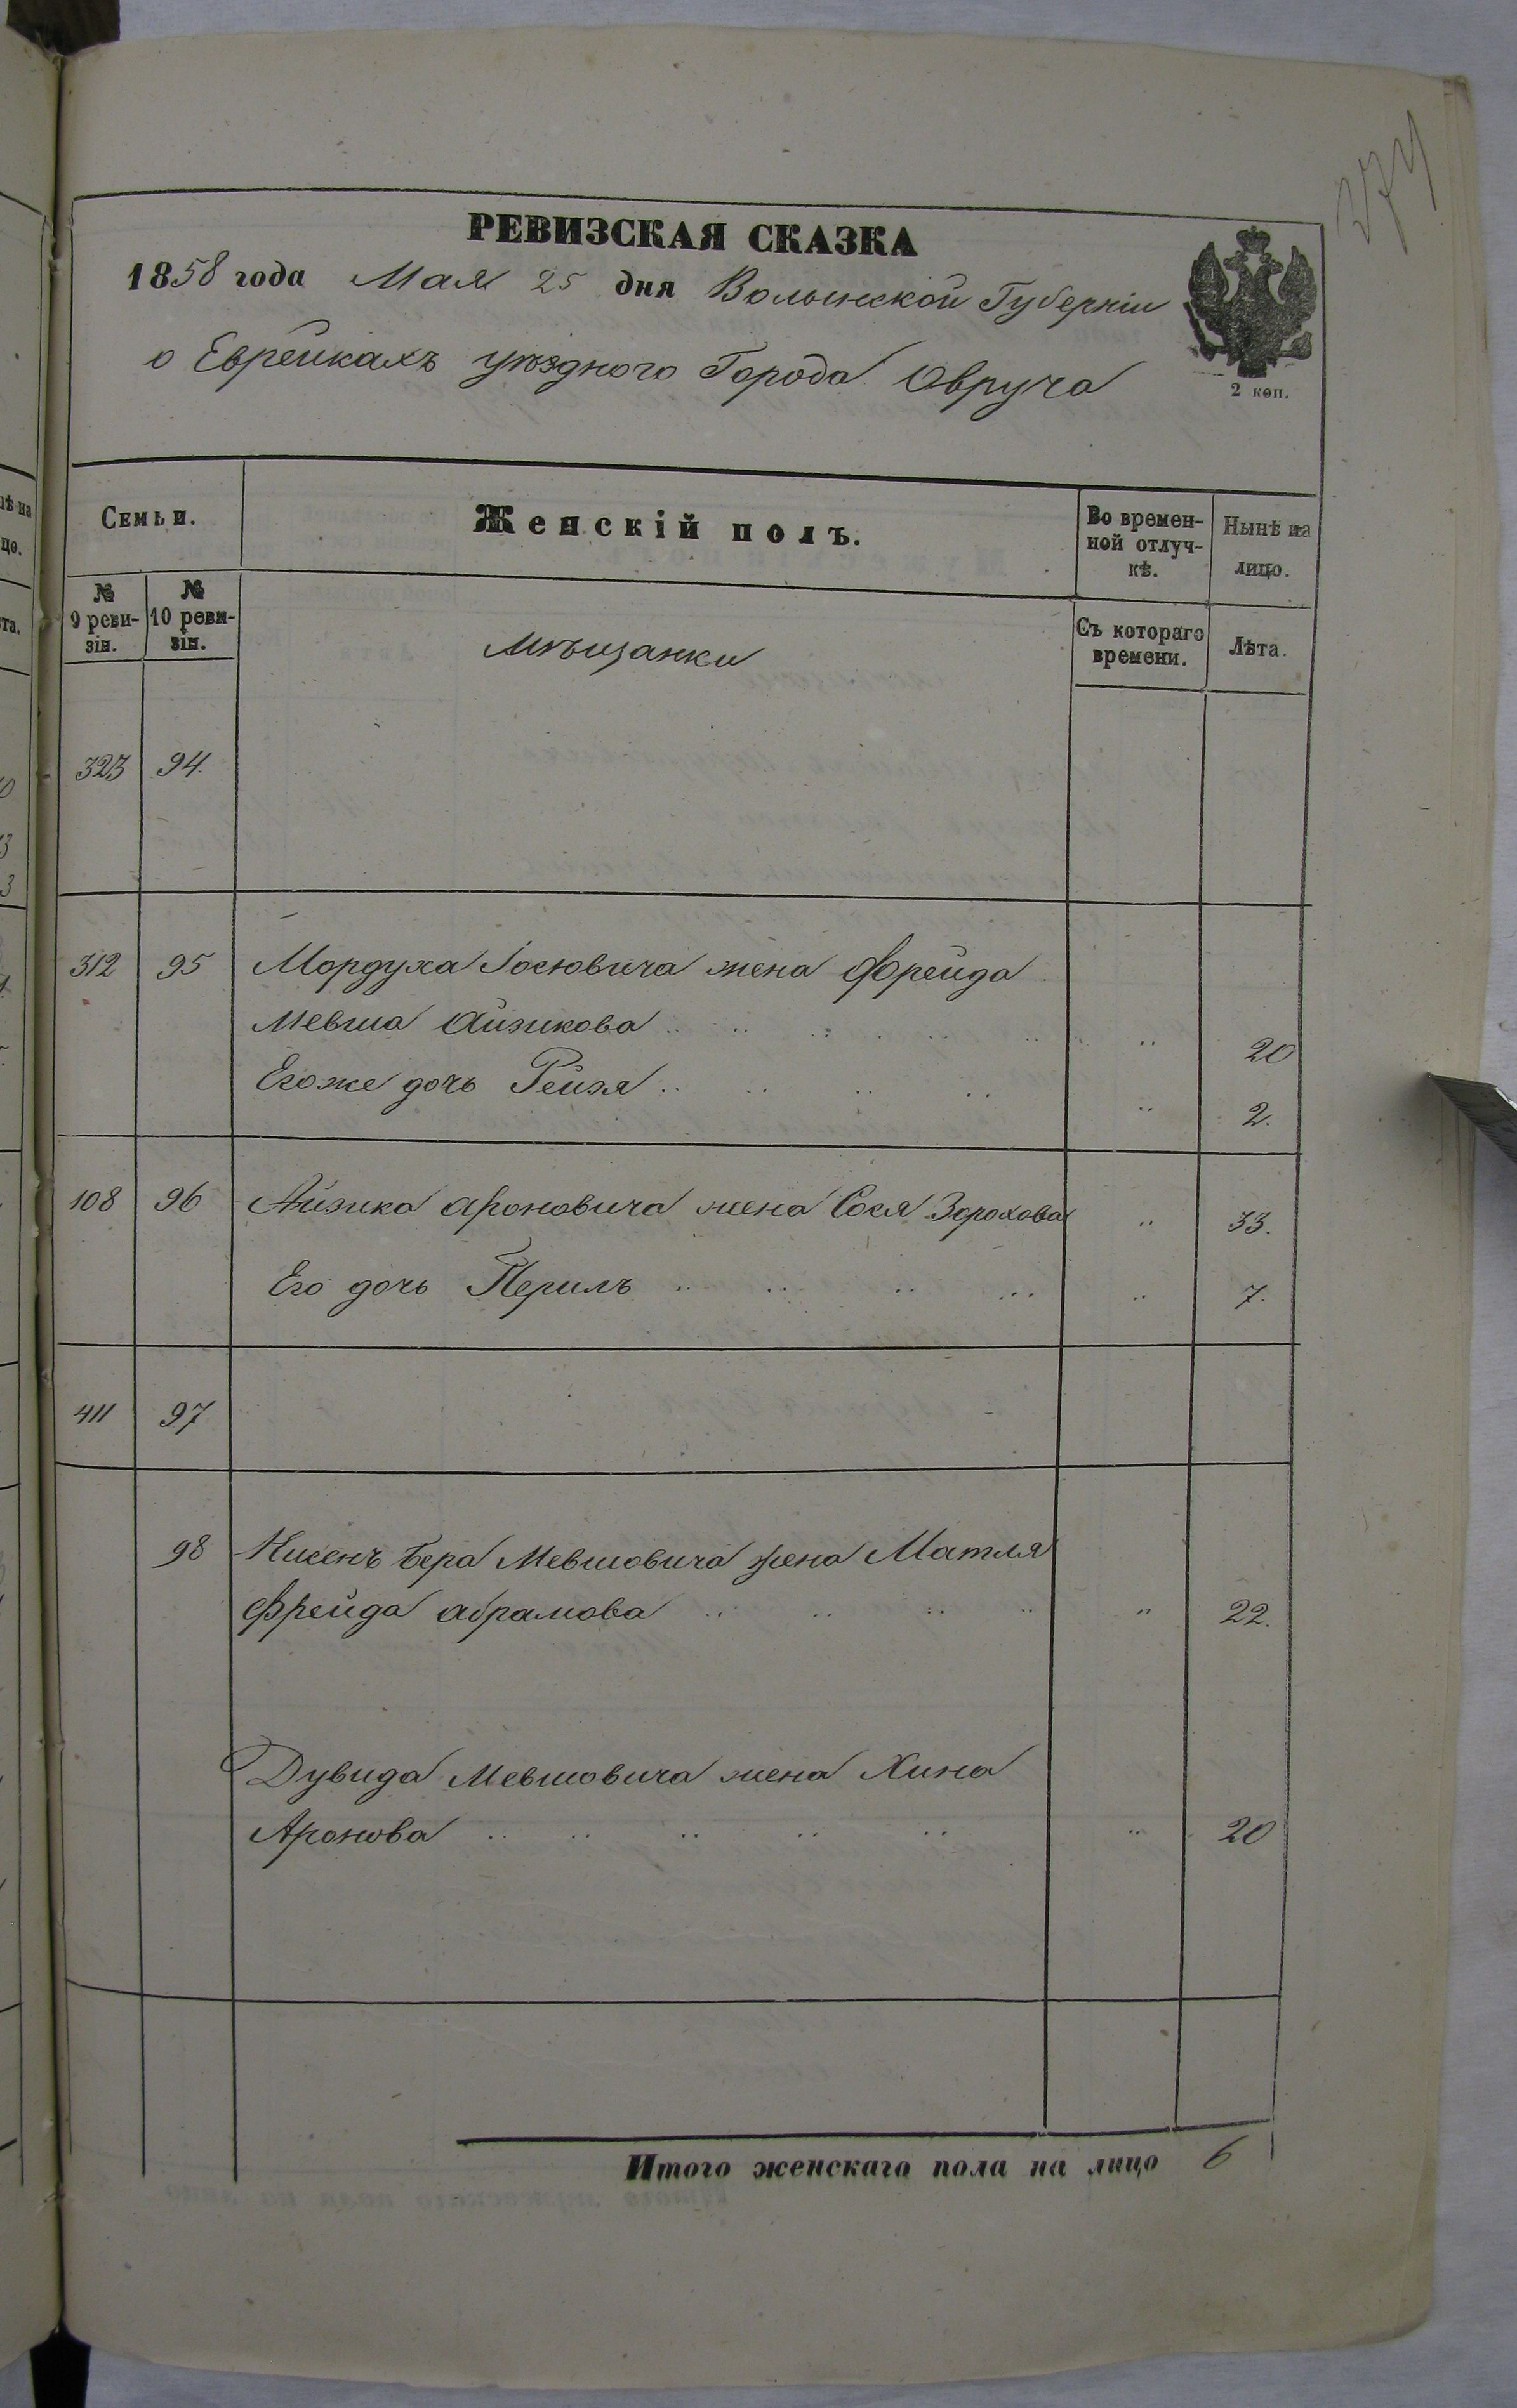 274
РЕВИЗСКАЯ СКАЗКА
1858 года Мая 25 дня Волынской Губерніи
о Еврейкахъ уѣзднаго Города Овруча
2 коп.
Семьи.
Женскій полъ.
Во времен-
ной отлуч-
кѣ.
Нынѣ на
лицо.
№
9 реви-
зіи.
№
10 реви-
зіи.
Мѣщанки
Съ котораго
времени.
Лѣта.
323 94.
312 95 Мордуха Іосіовича жена Фрейда
Мевша Айзикова .. .. .. .. .. 20
Егоже дочь Рейзя .. .. .. .. 2.
108 96 Айзика Ароновича жена Сося Зорохова .. 33.
Его дочь Перилъ .. .. .. ... .. 7.
411 97
98 Нисенъ Бера Мевшовича жена Матля
Фрейда Абрамова .. .. .. .. .. 22.
Дувида Мевшовича жена Хина
Аронова .. .. .. .. .. .. 20
Итого женскаго пола на лицо 6